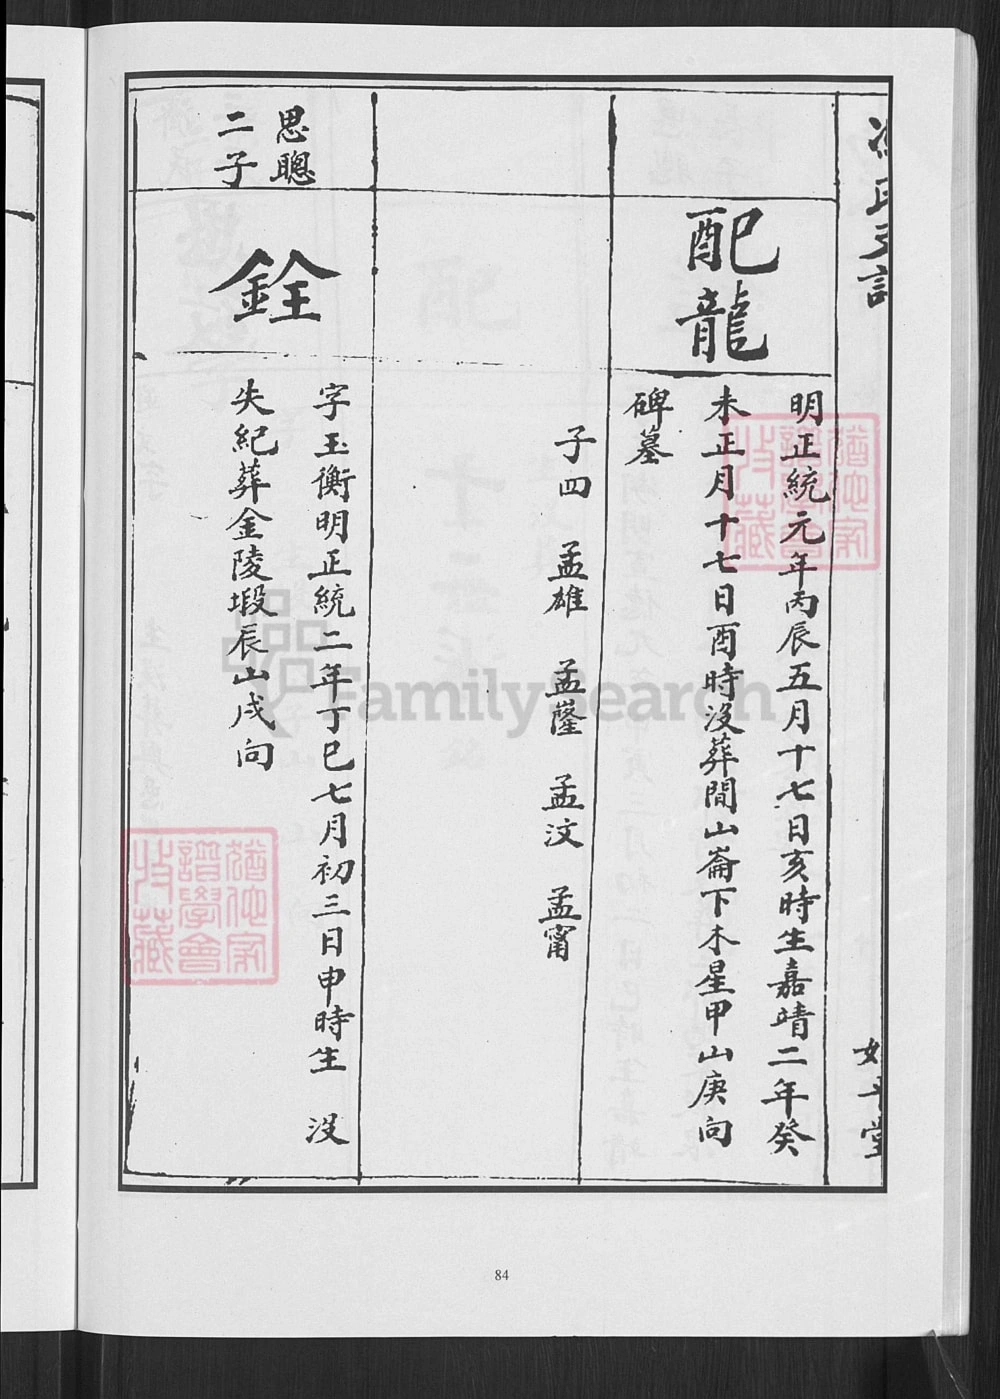 氏支譜
堂
配龍
明正統元年丙辰五月十七日亥時生嘉靖二年癸
未正月十七日酉時沒葬間山崙下木星甲山庚向
碑墓
子四 孟雄 孟鏧 孟汶 孟甯
思聰
二子
銓
字玉衡明正統二年丁巳七月初三日申時生 沒
失紀葬金陵塅辰山戌向
猶他家
譜學會
收藏
猶他家
譜學會
收藏
FamilySearch
84